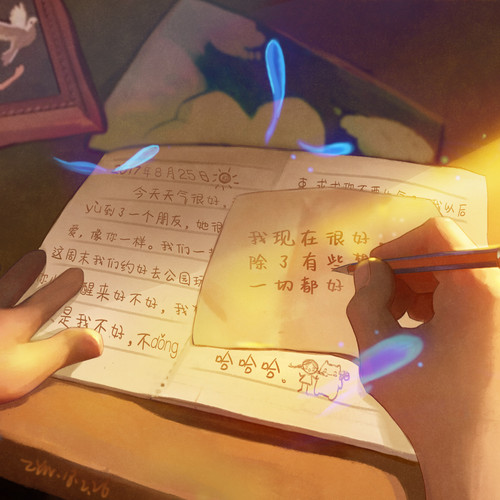 2017年8月25日
今天天气很好,
yù到了一个朋友,她很
爱,像你一样。我们一
这周末我们约好去公园玩
醒来好不好,我
是我不好,不dǒng
以后
我现在很好,
除了有些
一切都好
哈哈哈。